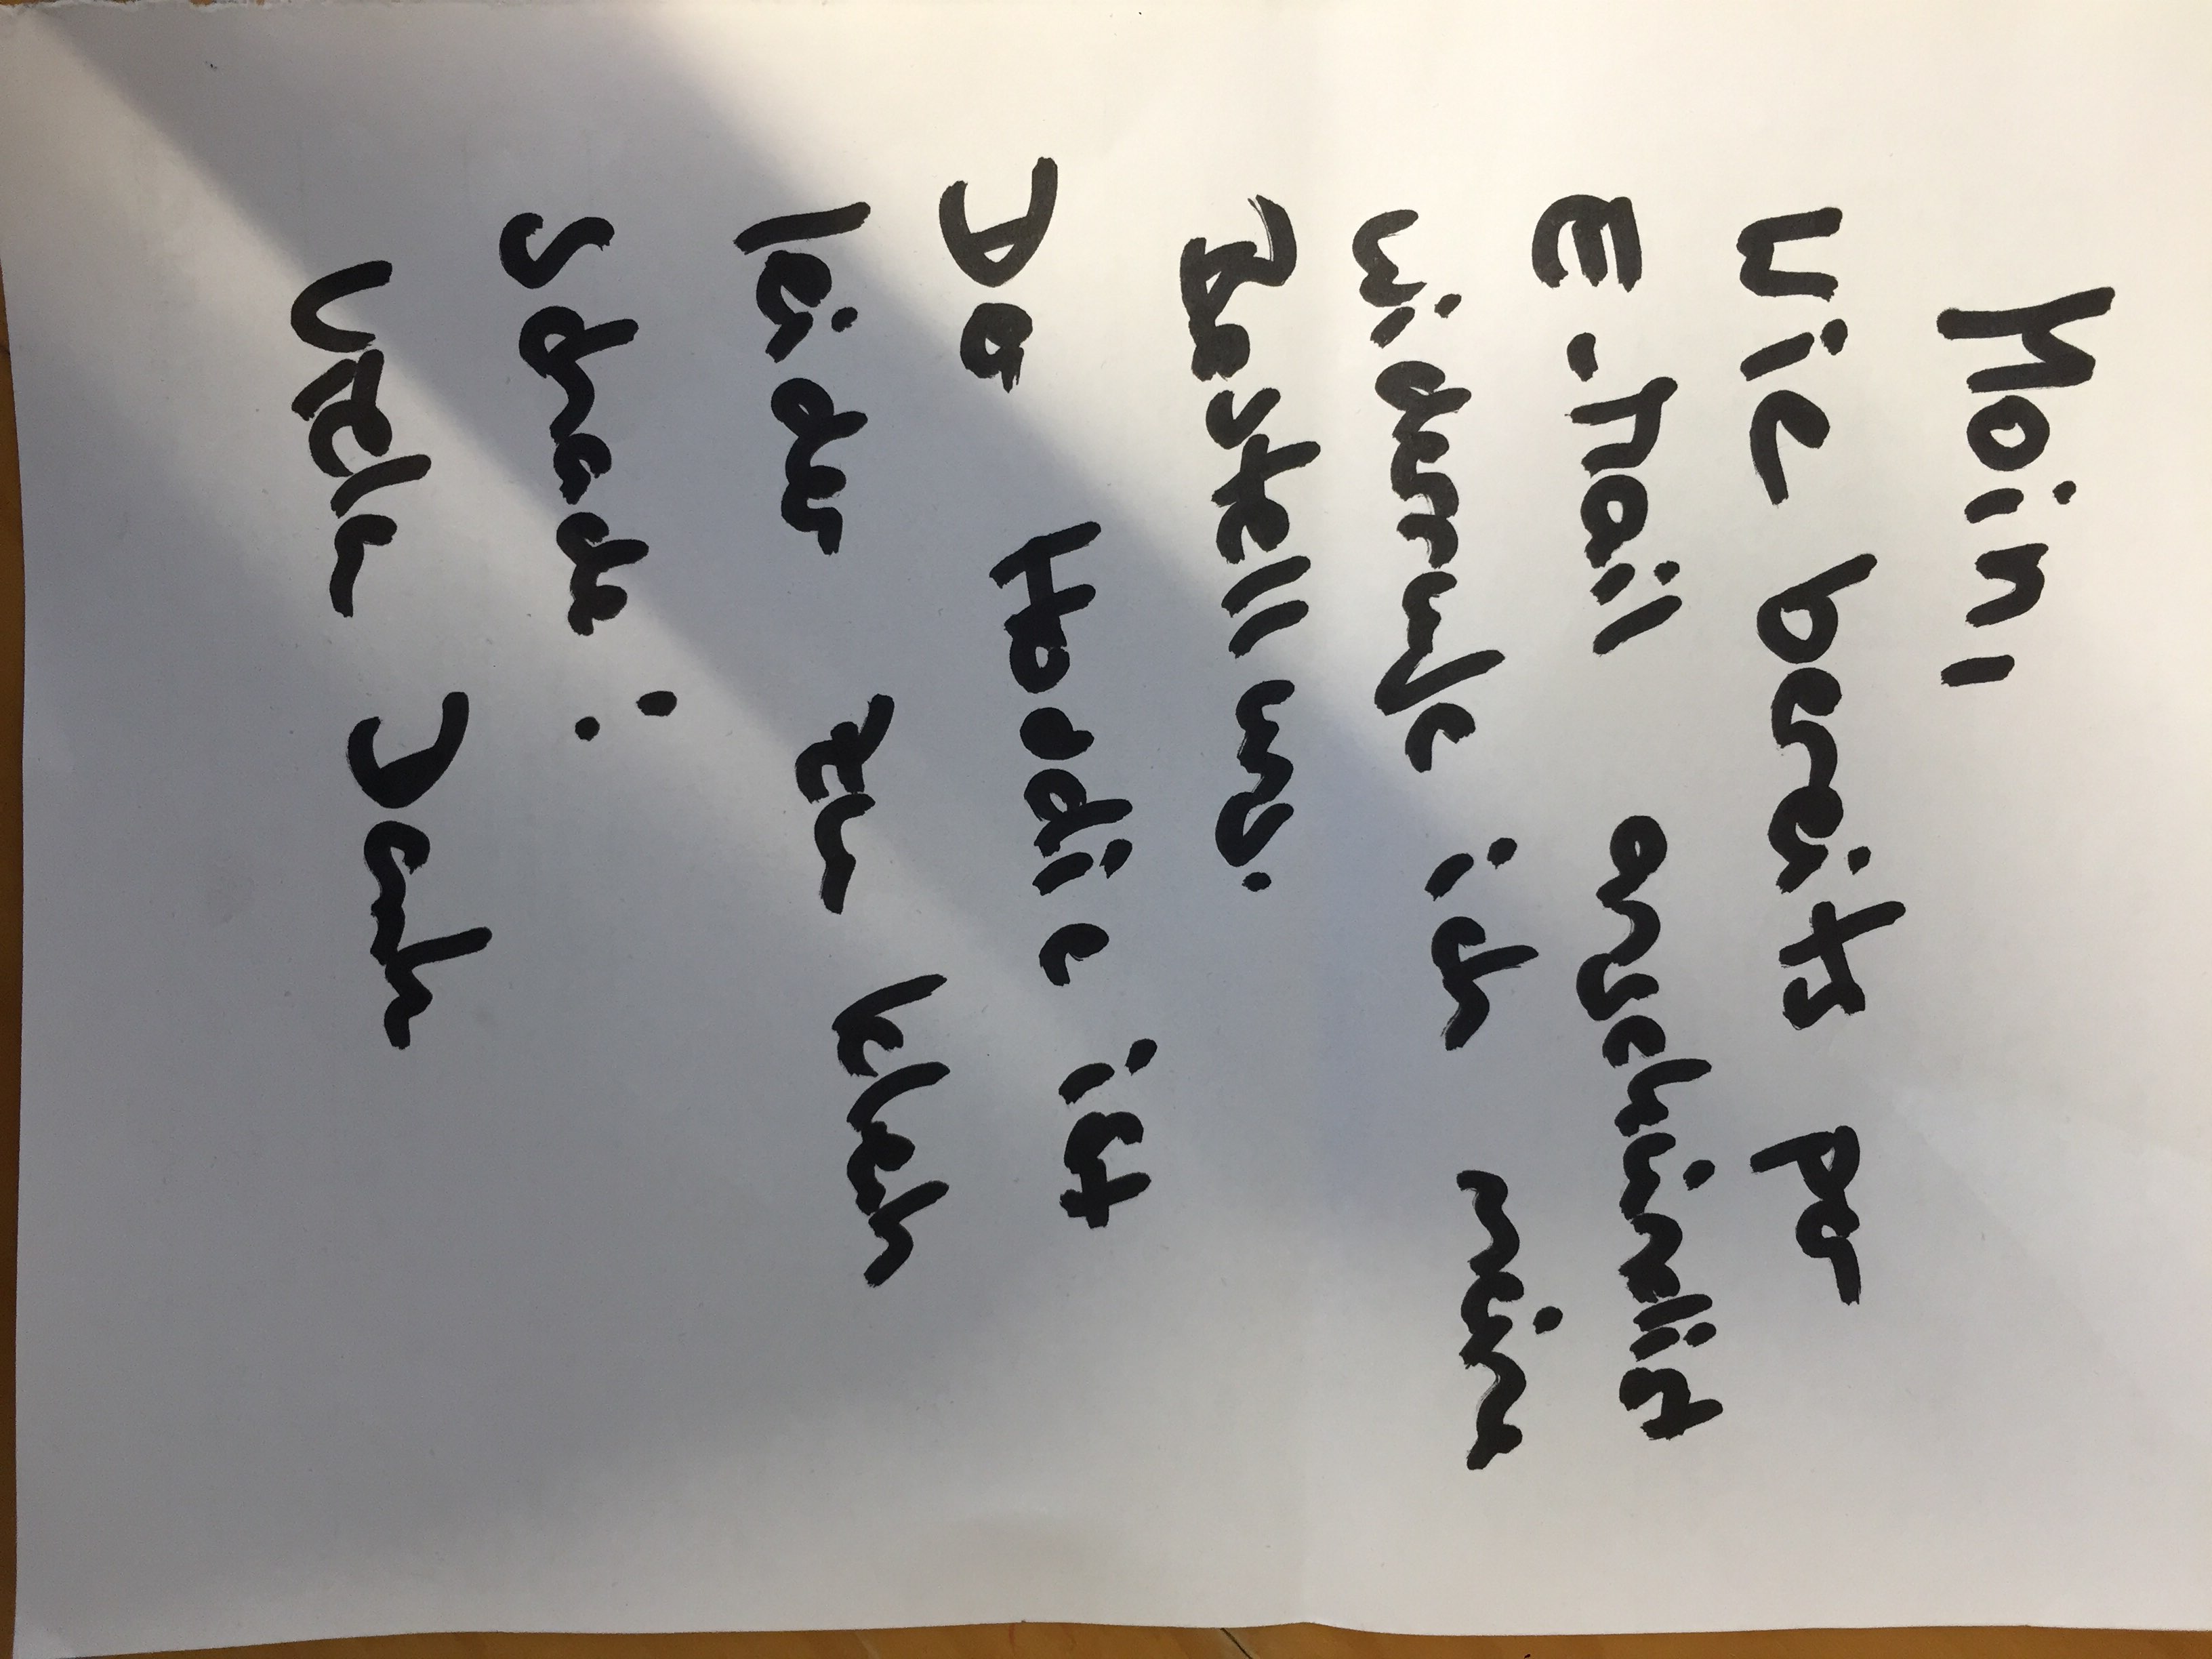 Moin,
Wie bereits per
E-Mail angekündigt
widerrufe ich meine
Bestellung.
Der Hoodie ist
leider zu klein
Schade :
Vielen Dank